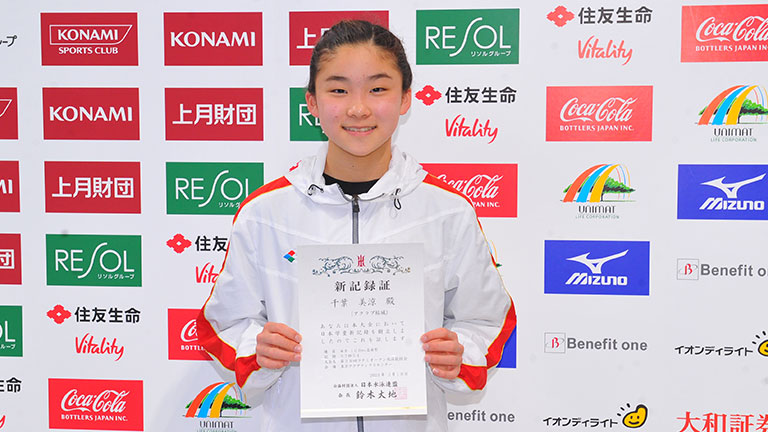 KONAMI
SPORTS CLUB
KONAMI
RESOL
リソルグループ
住友生命
Vitality
Coca-Cola
BOTTLERS JAPAN INC.
KONAMI
上月財団
住友生命
Vitality
Coca-Cola
BOTTLERS JAPAN INC.
UNIMAT
LIFE CORPORATION
上月財団
RESOL
リソルグループ
Coca-Cola
UNIMAT
LIFE CORPORATION
MIZUNO
RESOL
リソルグループ
住友生命
Vitality
MIZUNO
Benefit one
住友生命
Vitality
Coca-Cola
Benefit one
イオンディライト
Coca-Cola
BOTTLERS JAPAN INC.
UNIMAT
Benefit one
イオンディライト
大和証券
新記録証
千葉 美涼 殿
あなたは本大会において
日本学童新記録を樹立しま
したのでこれを証します
公益財団法人 日本水泳連盟
会長 鈴木大地